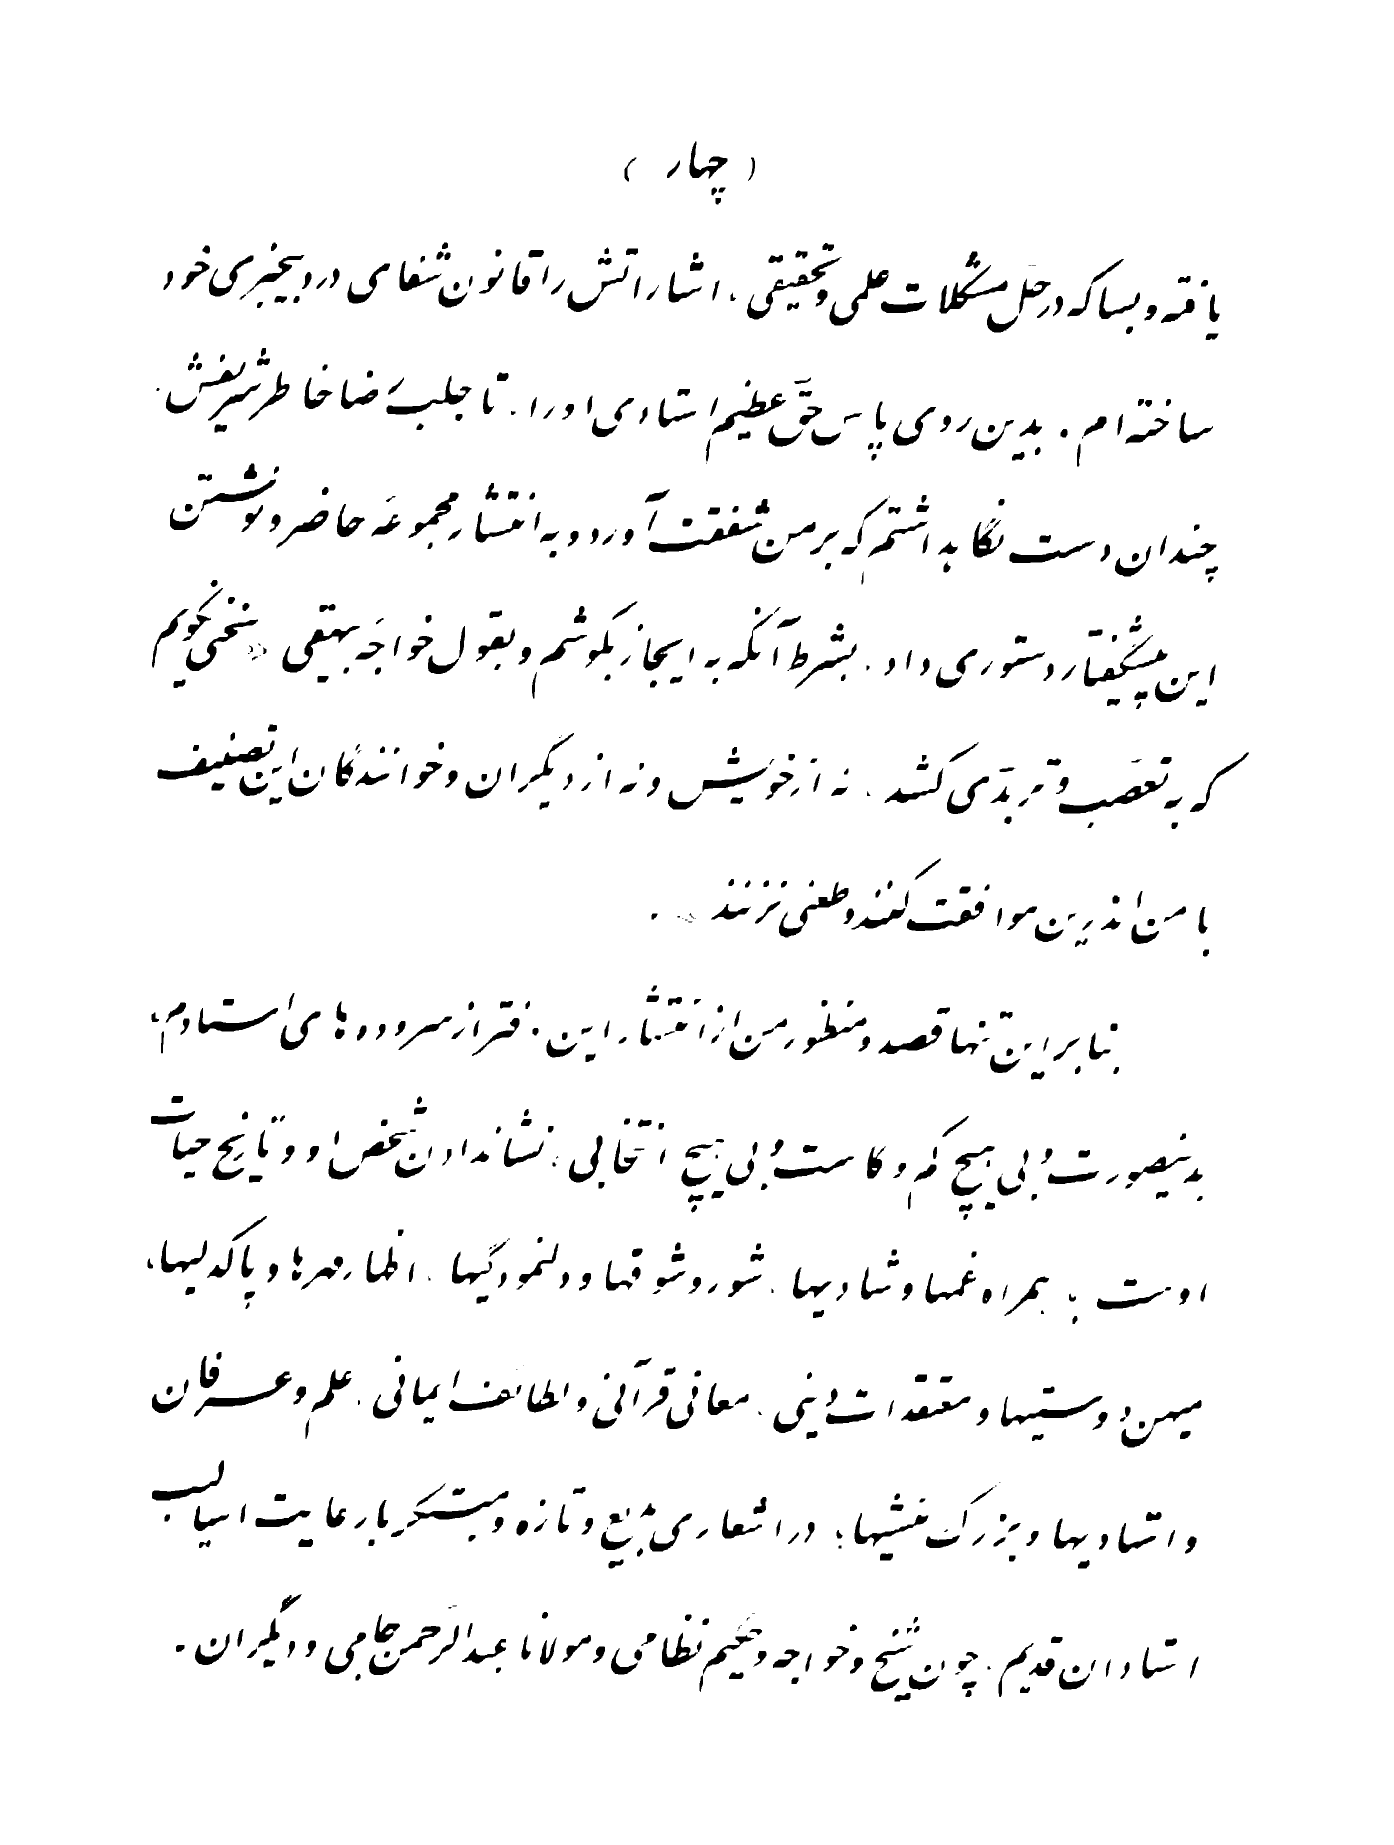 ( چهار )
یافته و بسا که در حلّ مشکلات علمی و تحقیقی ، اشاراتش را قانون شفای درد بیخبری خود
ساخته ام . بدین روی پاس حقّ عظیم استادی او را ، تا جلب رضا خاطر شریفش ،
چندان دست نگاهداشتم که بر من شفقت آورد و به انتشار مجموعهٔ حاضر و نوشتن
این پیشگفتار دستوری داد ، بشرط آنکه به ایجاز بکوشم و بقول خواجه بیهقی « سخنی نگویم
که به تعصّب و تربّدی کشد ، نه از خویش و نه از دیگران و خوانندگان این تصنیف
با من اندرین موافقت کنند و طعنی نزنند » .
بنابراین تنها قصد و منظور من از انتشار این دفتر از سروده های استادم ،
بدینصورت و بی هیچ کم و کاست و بی هیچ انتخابی ، نشاندادن شخص او و تاریخ حیات
اوست ؛ بهمراه غمها و شادیها ، شور و شوقها و دلنمودگیها ، اظهار مهرها و پاکدلیها ،
میهن دوستیها و معتقدات دینی ، معانی قرآنی و لطائف ایمانی ، علم و عرفان
و استادیها و بزرگ منشیها ؛ در اشعاری بدیع و تازه و مبتکر با رعایت اسالیب
استادان قدیم ، چون شیخ و خواجه و حکیم نظامی و مولانا عبدالرّحمن جامی و دیگران .